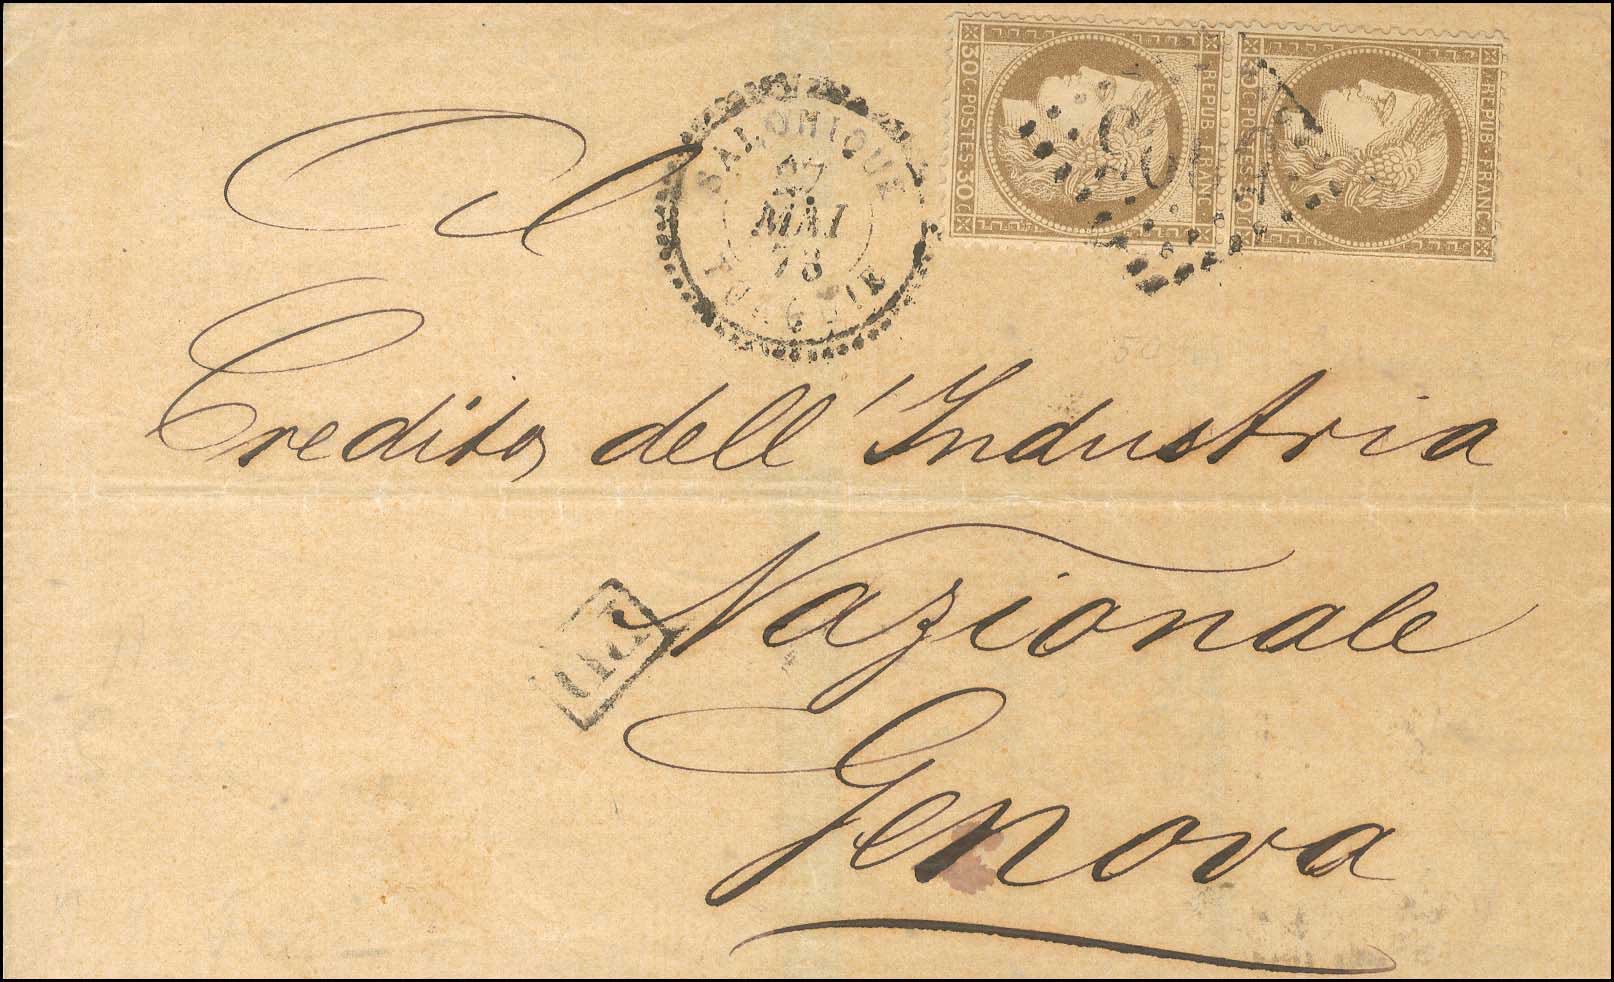 30 C. POSTES 30 C.
REPUB. FRANC.
30 C. POSTES 30 C.
REPUB. FRANC.
SALONIQUE
27
MAI
73
TURQUIE
Al
Credito dell'Industria
Nazionale
PD
Genova